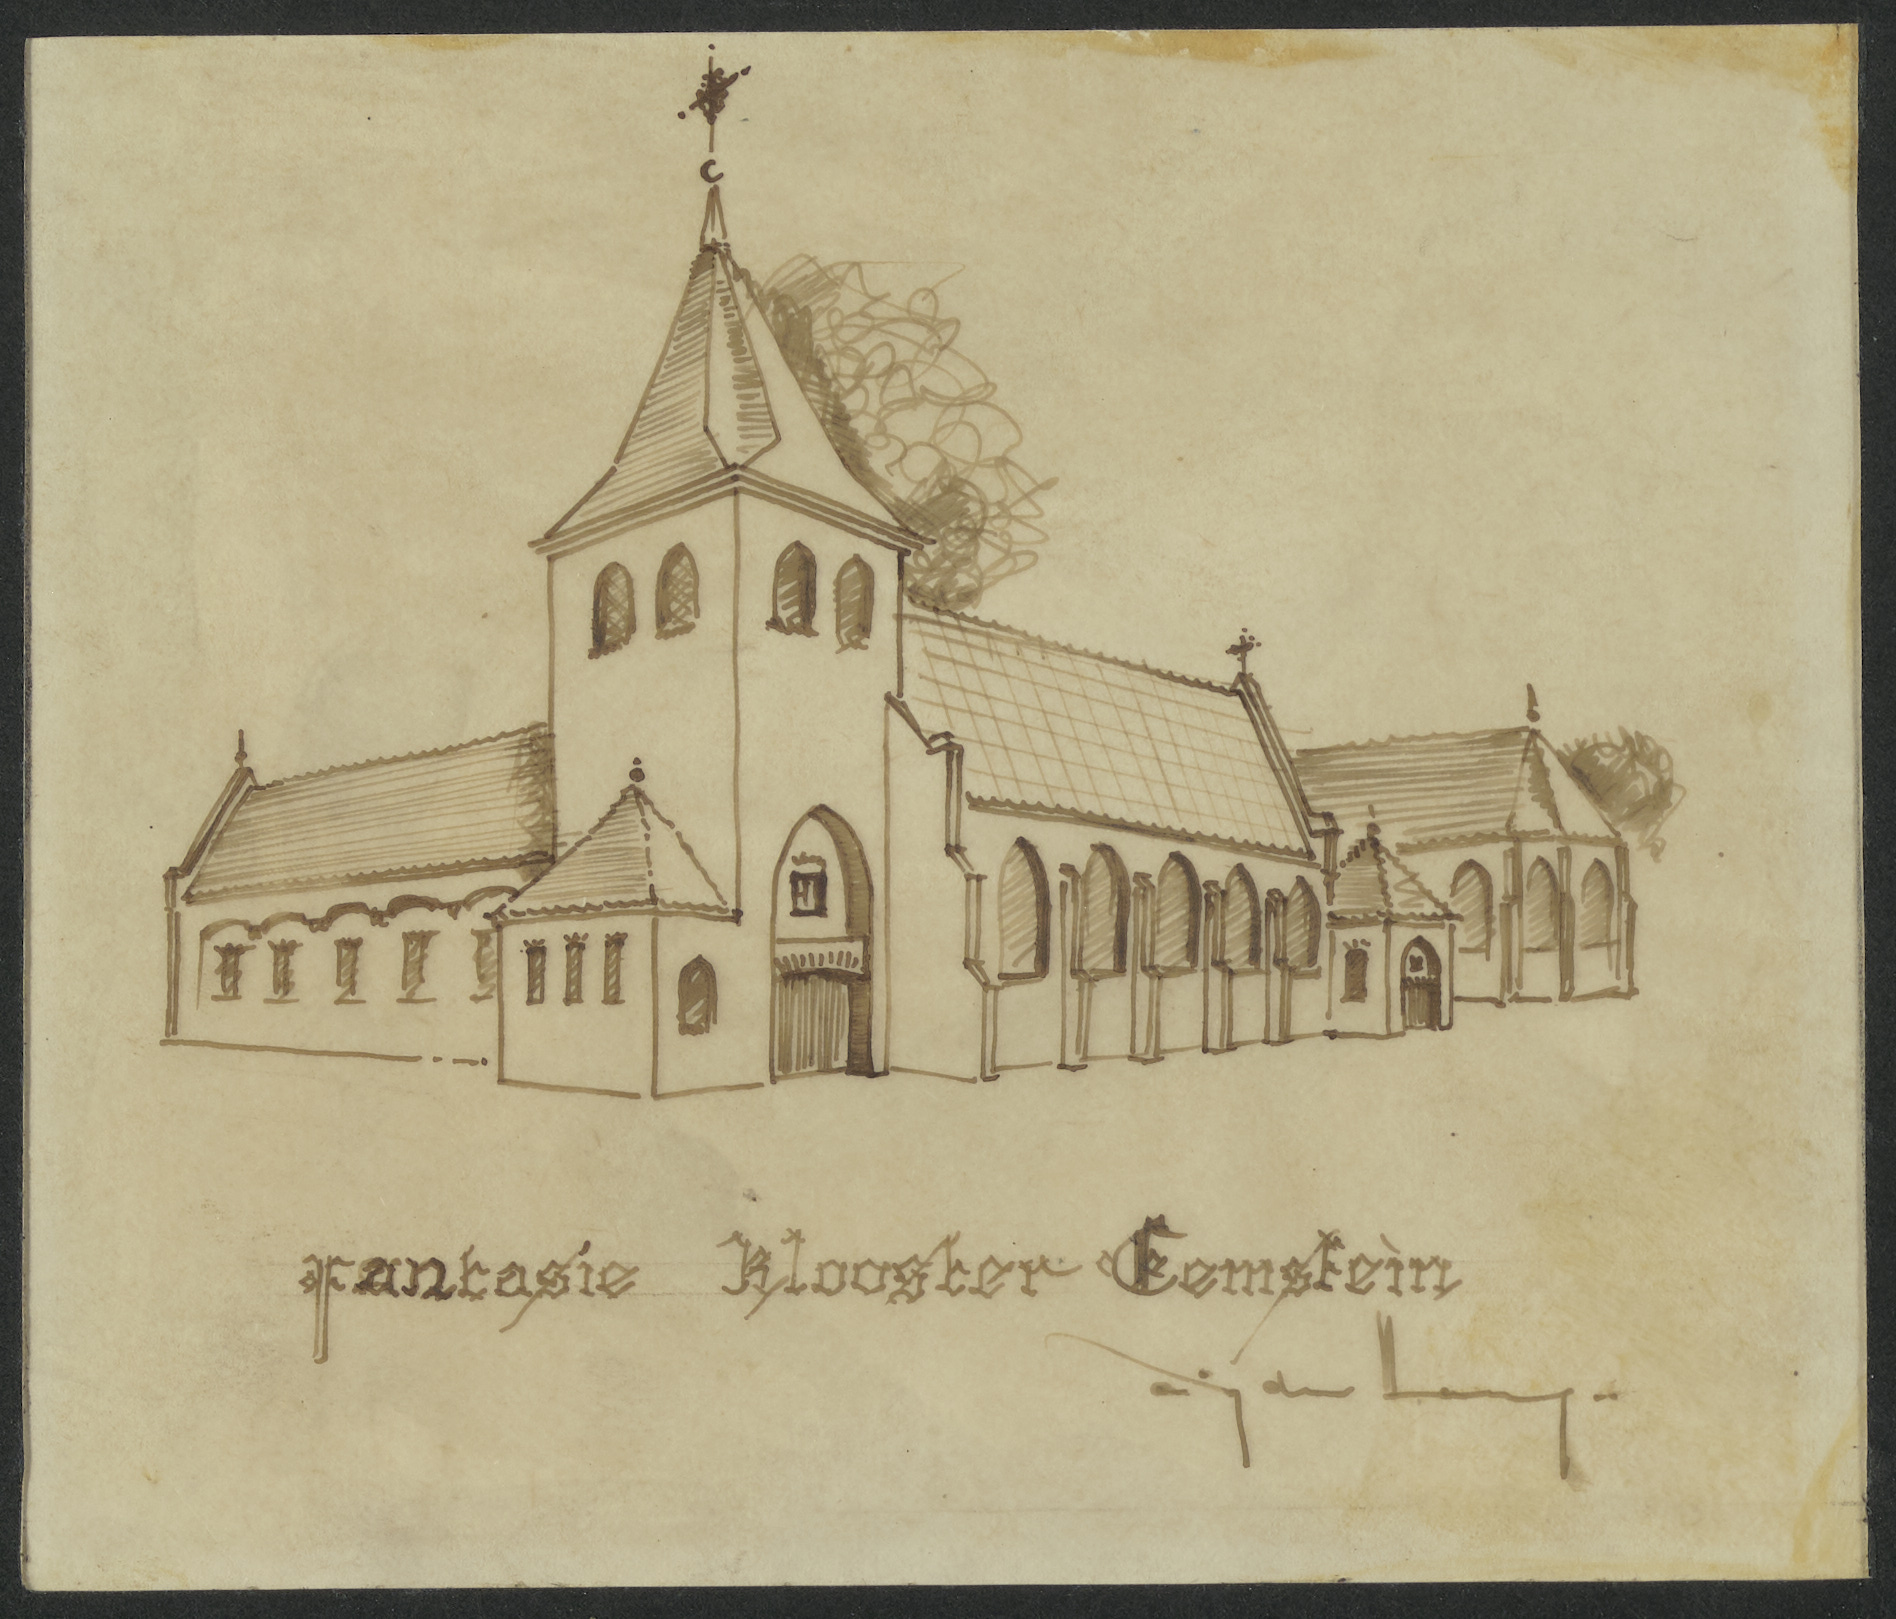 Fantasie Klooster Eemstein